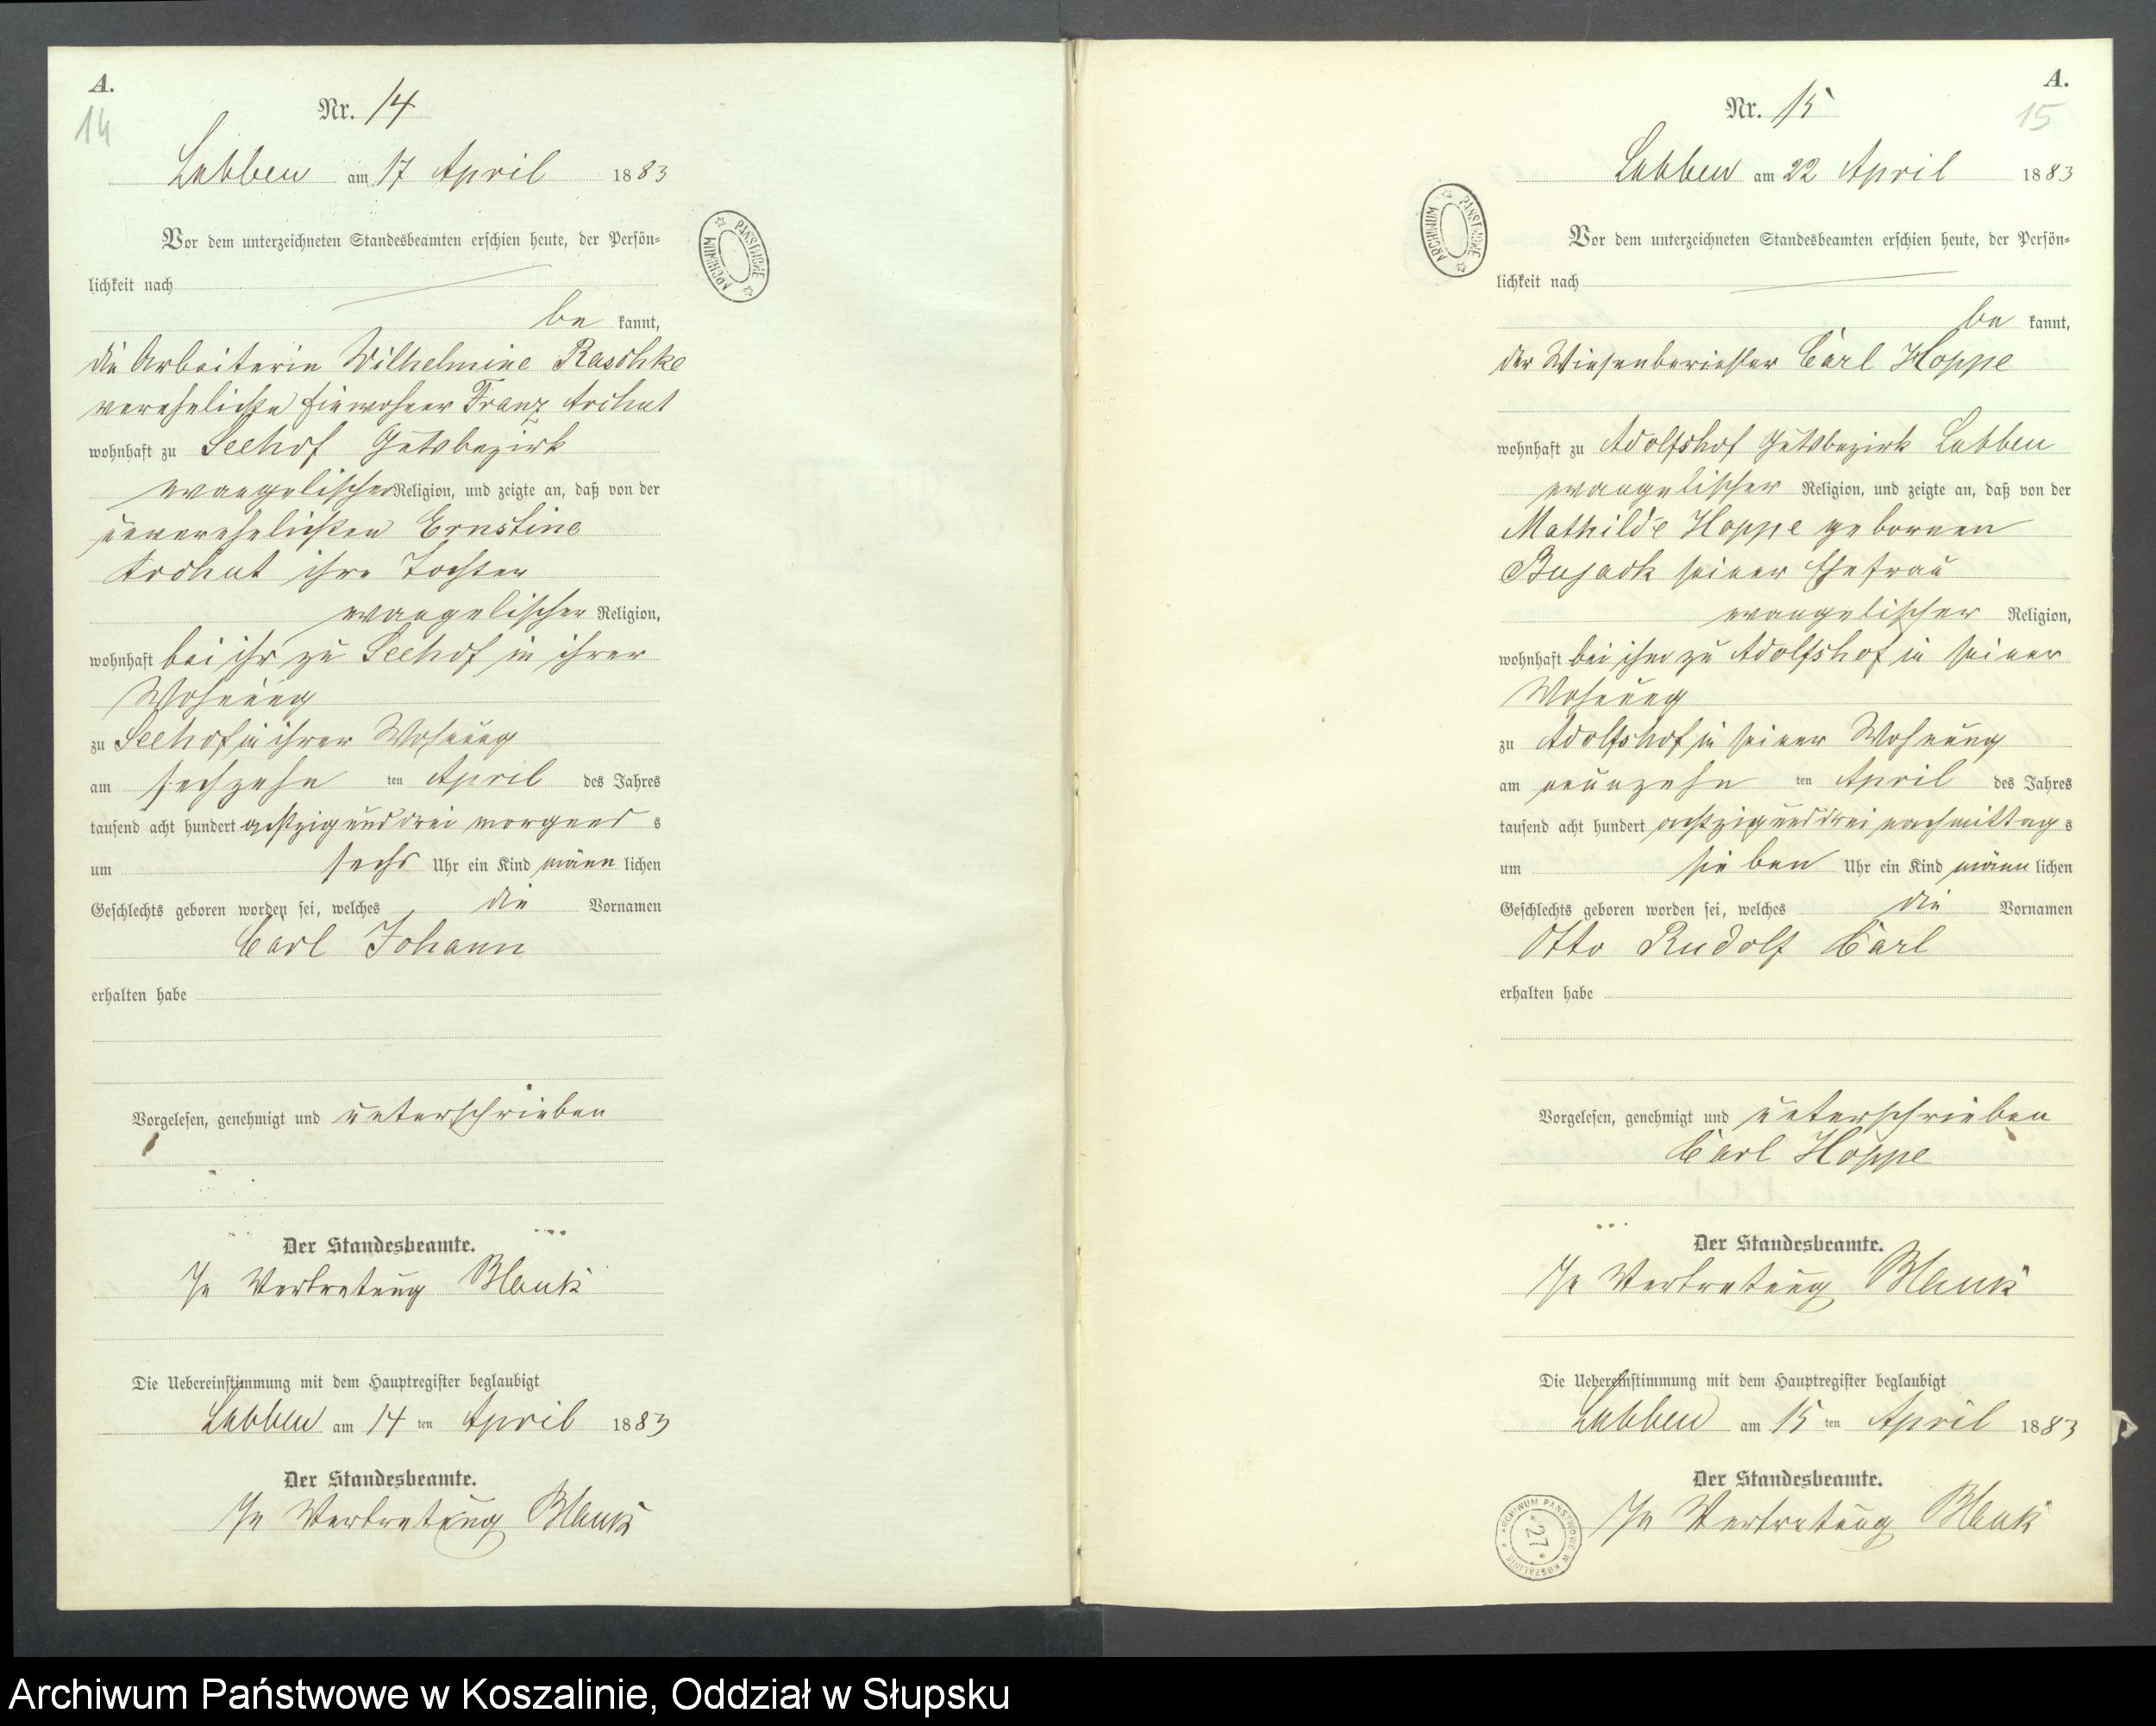 A.
14
Nr. 14
Lubben am 17 April 1883
Vor dem unterzeichneten Standesbeamten erschien heute, der Persön-
lichkeit nach
be kannt,
die Arbeiterin Wilhelmine Raschke
verehelichte Einwohner Franz Archut
wohnhaft zu Seehof Gutsbezirk
evangelischer Religion, und zeigte an, daß von der
unverehelichten Ernstine
Archut ihre Tochter
evangelischer Religion,
wohnhaft bei ihr zu Seehof in ihrer
Wohnung
zu Seehof in ihrer Wohnung
am sechzehn ten April des Jahres
tausend acht hundert achtzig und drei morgens s
um sechs Uhr ein Kind männ lichen
Geschlechts geboren worden sei, welches die Vornamen
Carl Johann
erhalten habe
Vorgelesen, genehmigt und unterschrieben
Der Standesbeamte.
In Vertretung Blank
Die Uebereinstimmung mit dem Hauptregister beglaubigt
Lubben am 14 ten April 1883
Der Standesbeamte.
In Vertretung Blank
ARCHIWUM PAŃSTWOWE
A.
15
Nr. 15
Lubben am 22 April 1883
Vor dem unterzeichneten Standesbeamten erschien heute, der Persön-
lichkeit nach
be kannt,
der Carl Hoppe
wohnhaft zu Adolfshof Gutsbezirk Lubben
evangelischer Religion, und zeigte an, daß von der
Mathilde Hoppe gebornen
Bujack seiner Ehefrau
evangelischer Religion,
wohnhaft bei ihm zu Adolfshof in seiner
Wohnung
zu Adolfshof in seiner Wohnung
am neunzehn ten April des Jahres
tausend acht hundert achtzig und drei nachmittag s
um sieben Uhr ein Kind männ lichen
Geschlechts geboren worden sei, welches die Vornamen
Otto Rudolf Carl
erhalten habe
Vorgelesen, genehmigt und unterschrieben
Carl Hoppe
Der Standesbeamte.
In Vertretung Blank
Die Uebereinstimmung mit dem Hauptregister beglaubigt
Lubben am 15 ten April 1883
Der Standesbeamte.
In Vertretung Blank
ARCHIWUM PAŃSTWOWE
ARCHIWUM PAŃSTWOWE W KOSZALINIE
*27*
Archiwum Państwowe w Koszalinie, Oddział w Słupsku